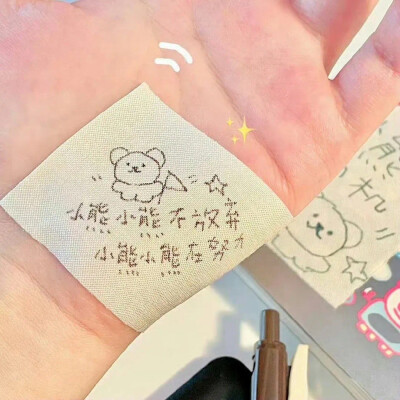 小熊小熊不放弃
小熊小熊在努力
熊
机